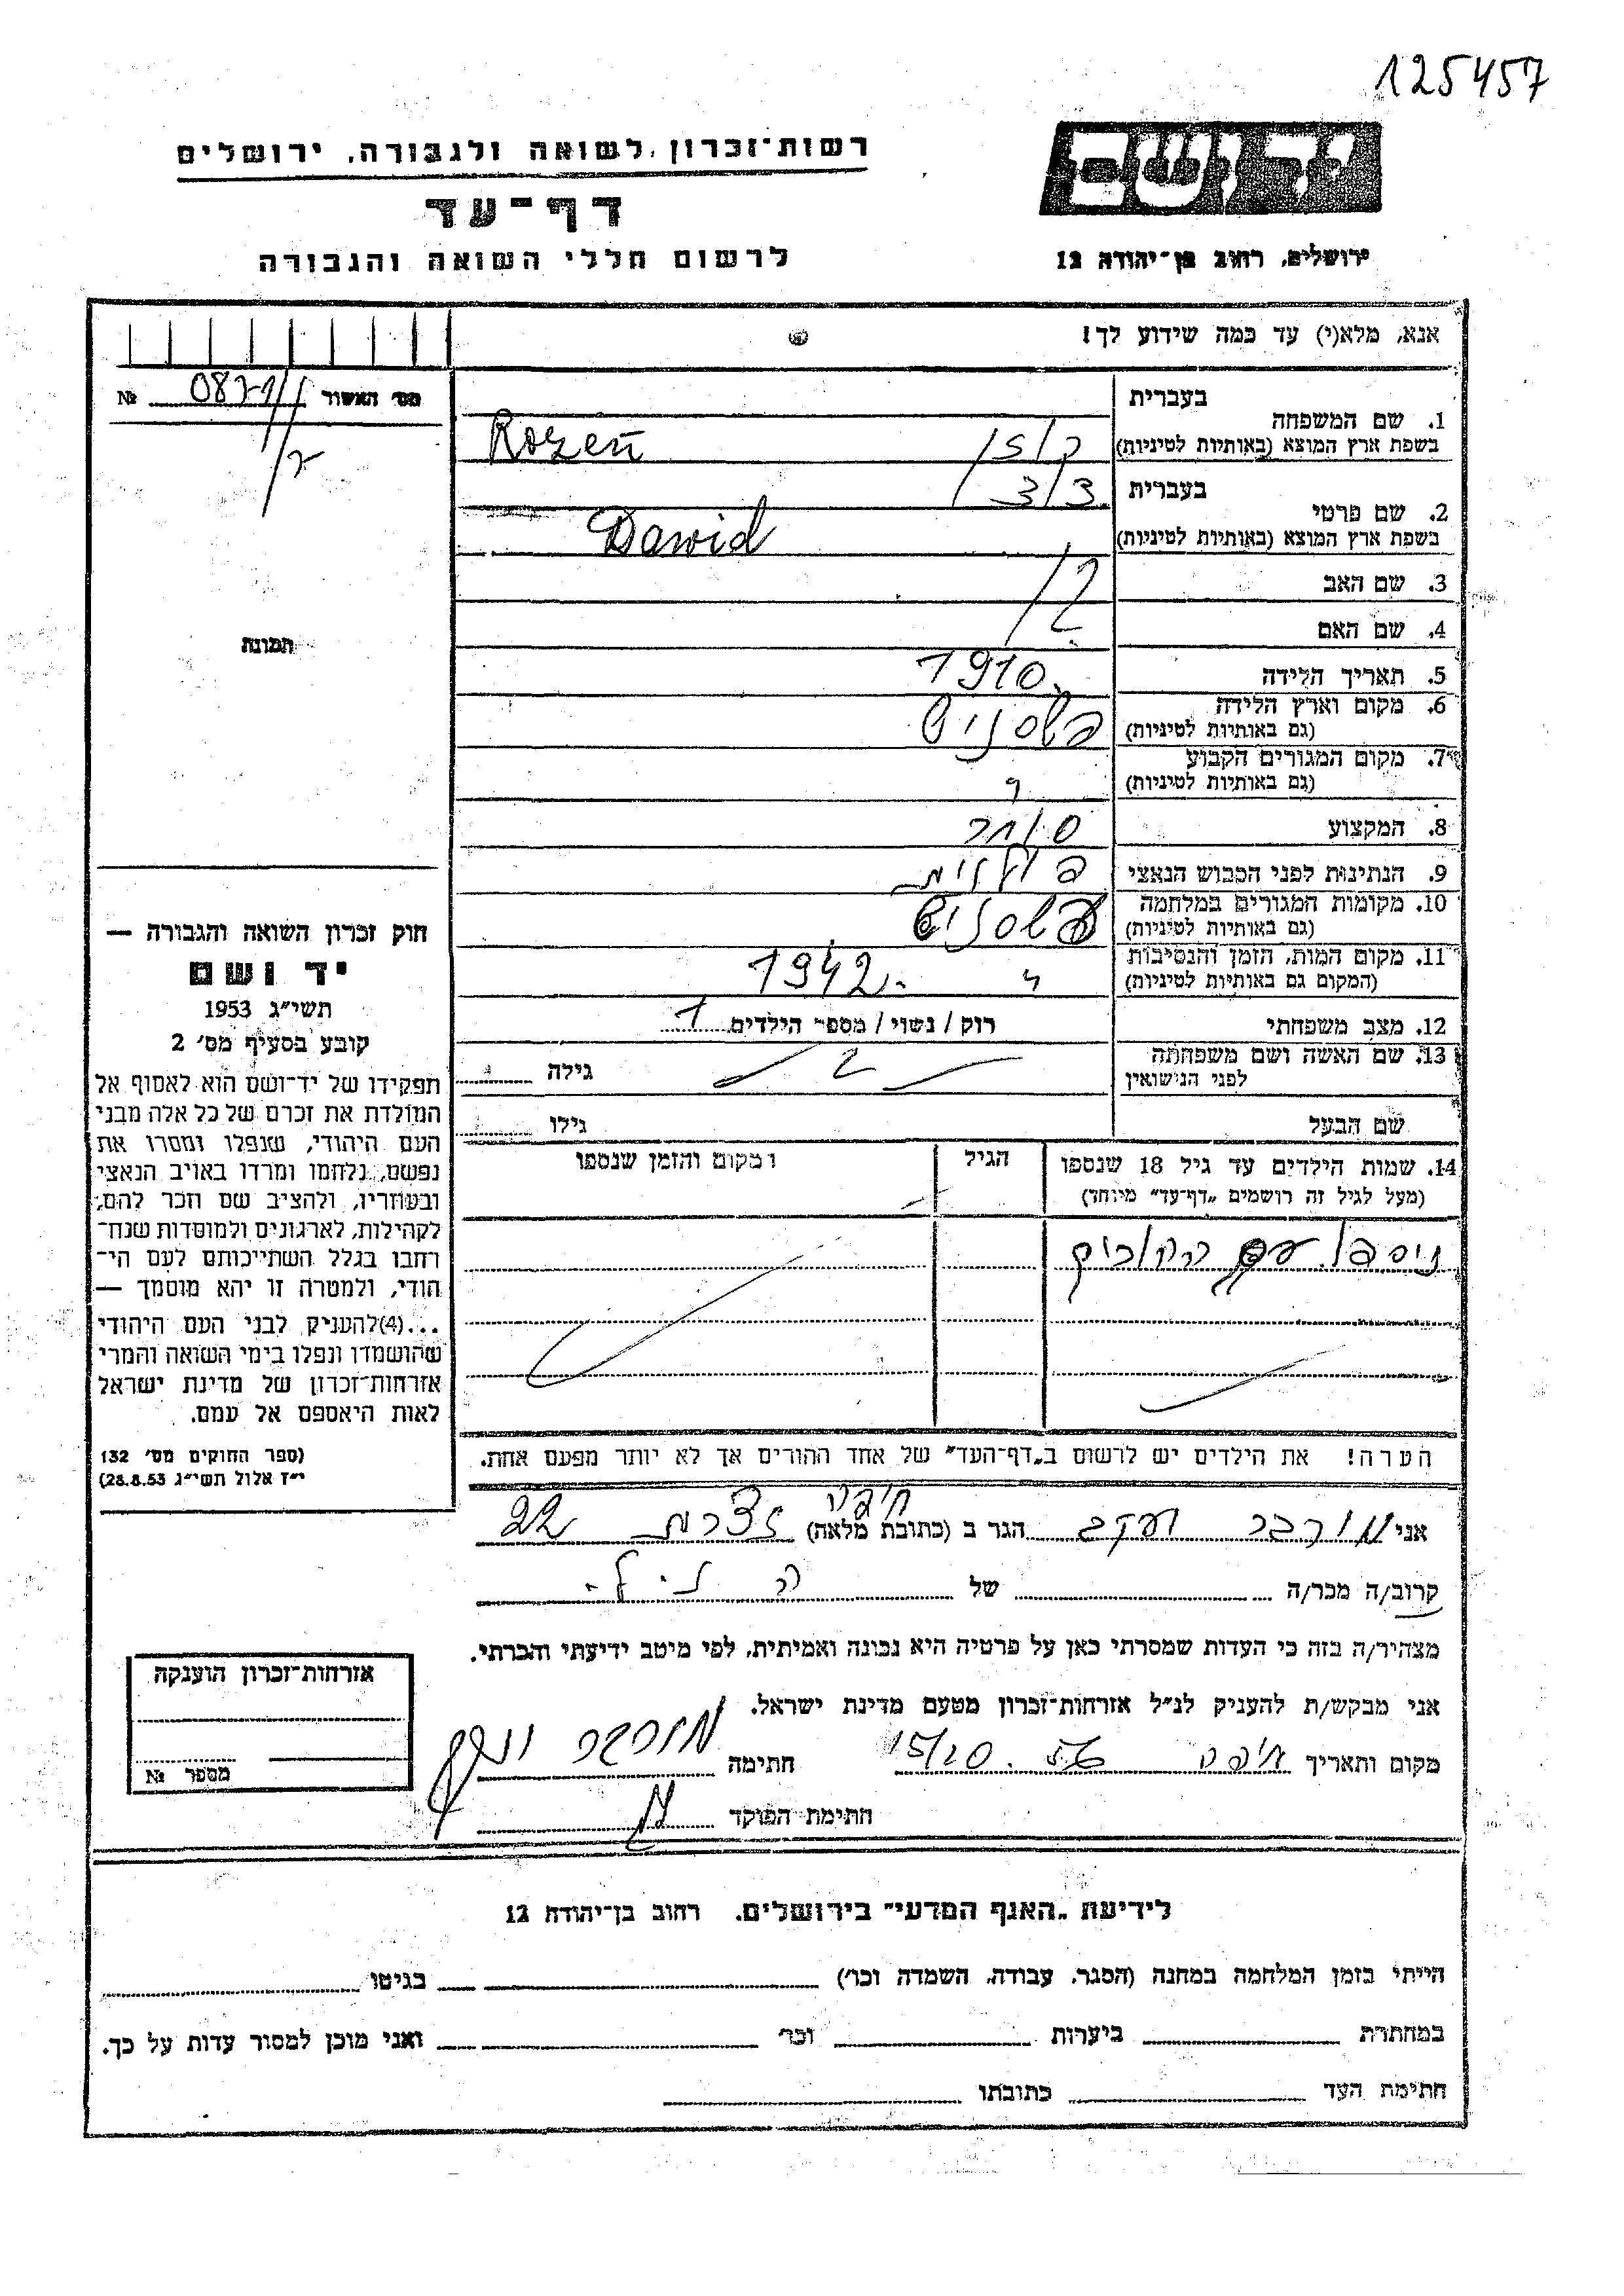 125457
יד ושם
ירושלים, רחוב בן־יהודה 12
רשות־זכרון לשואה ולגבורה, ירושלים
דף־עד
לרשום חללי השואה והגבורה
אנא, מלא(י) עד כמה שידוע לך!
מס' האשור №
תמונה
חוק זכרון השואה והגבורה —
יד ושם
תשי״ג 1953
קובע בסעיף מס׳ 2
תפקידו של יד־ושם הוא לאסוף אל
המולדת את זכרם של כל אלה מבני
העם היהודי, שנפלו ומסרו את
נפשם, נלחמו ומרדו באויב הנאצי
ובעוזריו, ולהציב שם וזכר להם,
לקהילות, לארגונים ולמוסדות שנח־
רבו בגלל השתייכותם לעם הי־
הודי, ולמטרה זו יהא מוסמך —
...(4)להעניק לבני העם היהודי
שהושמדו ונפלו בימי השואה והמרי
אזרחות־זכרון של מדינת ישראל
לאות היאספם אל עמם.
(ספר החוקים מס׳ 132
י״ז אלול תשי״ג 28.8.53)
1. שם המשפחה בעברית רוזן
בשפת ארץ המוצא (באותיות לטיניות) Rozen
2. שם פרטי בעברית דוד
בשפת ארץ המוצא (באותיות לטיניות) Dawid
3. שם האב ?
4. שם האם
5. תאריך הלידה 1910.
6. מקום וארץ הלידה
(גם באותיות לטיניות)
7. מקום המגורים הקבוע
(גם באותיות לטיניות) "
8. המקצוע סוחר
9. הנתינות לפני הכבוש הנאצי פולנית
10. מקומות המגורים במלחמה
(גם באותיות לטיניות)
11. מקום המות, הזמן והנסיבות " 1942.
(המקום גם באותיות לטיניות)
12. מצב משפחתי רוק / נשוי / מספר הילדים 1
13. שם האשה ושם משפחתה ? גילה
לפני הנישואין
שם הבעל גילו
14. שמות הילדים עד גיל 18 שנספו הגיל ומקום והזמן שנספו
(מעל לגיל זה רושמים „דף־עד״ מיוחד)
ניספו עם ההורים
הערה! את הילדים יש לרשום ב„דף־העד״ של אחד ההורים אך לא יותר מפעם אחת.
אני יעקב הגר ב (כתובת מלאה) חיפה 22
קרוב/ה מכר/ה של הנ״ל
מצהיר/ה בזה כי העדות שמסרתי כאן על פרטיה היא נכונה ואמיתית, לפי מיטב ידיעתי והכרתי.
אני מבקש/ת להעניק לנ״ל אזרחות־זכרון מטעם מדינת ישראל.
מקום ותאריך חיפה 15/10. 56 חתימה
חתימת הפוקד
אזרחות־זכרון הוענקה
מספר №
לידיעת „האגף המדעי״ בירושלים, רחוב בן־יהודה 12
הייתי בזמן המלחמה במחנה (הסגר, עבודה, השמדה וכו׳) בגיטו
במחתרת ביערות וכו׳ ואני מוכן למסור עדות על כך.
חתימת העד כתובתו